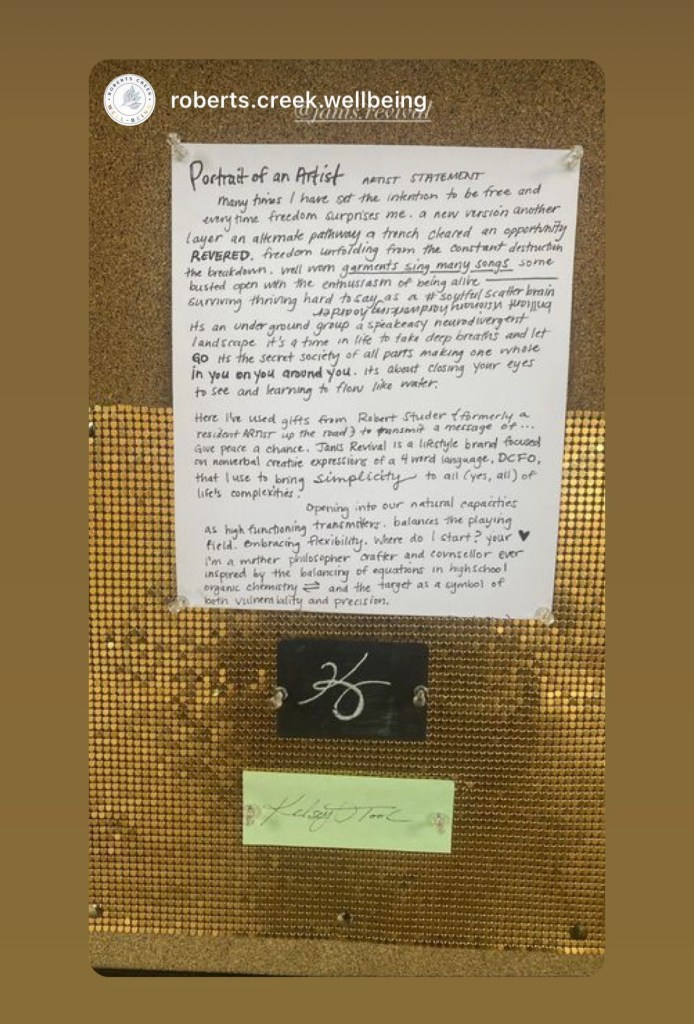 ROBERTS CREEK
WELL-BEING
roberts.creek.wellbeing
@janis.revival
Portrait of an Artist ARTIST STATEMENT
Many times I have set the intention to be free and
everytime freedom surprises me. a new version another
layer an alternate pathway a trench cleared an opportunity
REVERED. freedom unfolding from the constant destruction
the breakdown. well worn garments sing many songs some
busted open with the enthusiasm of being alive
surviving thriving hard to say as a #soulful scatter brain
its an underground group a speakeasy neurodivergent
landscape it's a time in life to take deep breaths and let
GO its the secret society of all parts making one whole
in you on you around you. its about closing your eyes
to see and learning to flow like water.
Here I've used gifts from Robert Studer {formerly a
resident ARTIST up the road} to transmit a message of...
Give peace a chance. Janis Revival is a lifestyle brand focused
on nonverbal creative expressions of a 4 word language, DCFO,
that I use to bring simplicity to all (yes, all) of
life's complexities.
Opening into our natural capacities
as high functioning transmitters. balances the playing
field. embracing flexibility. Where do I start? your ♥
I'm a mother philosopher crafter and counsellor ever
inspired by the balancing of equations in highschool
organic chemistry ⇌ and the target as a symbol of
both vulnerability and precision.
Kelsey Took